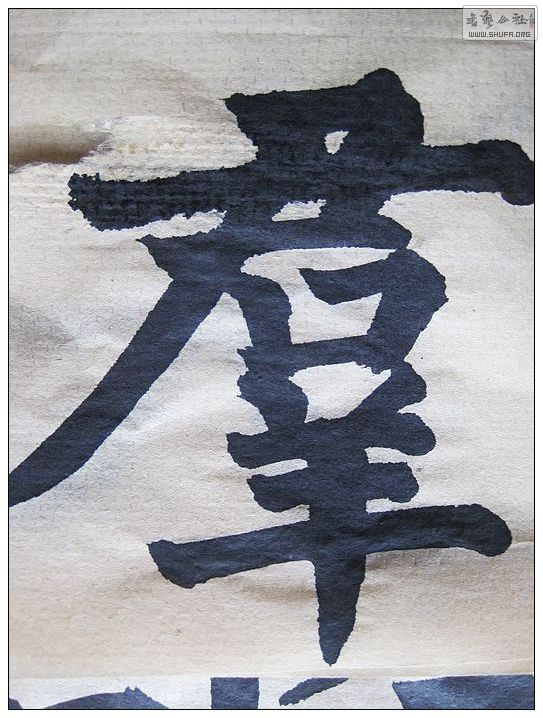 書藝公社
WWW.SHUFA.ORG
羣